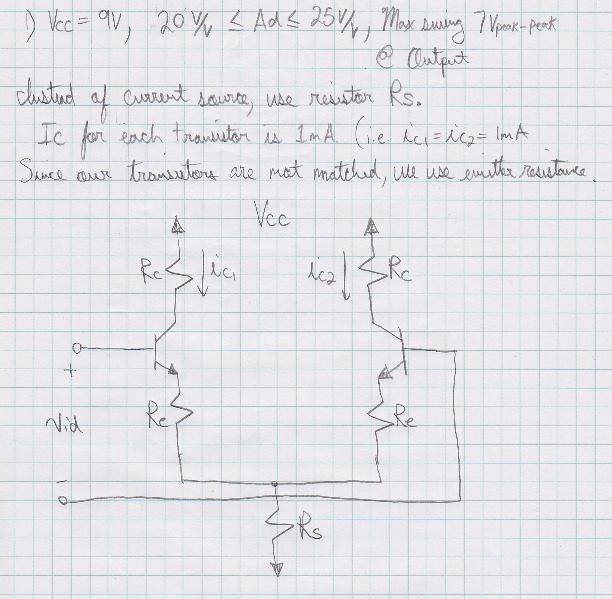 1) Vcc = 9V, 20 V/V ≤ Ad ≤ 25 V/V, Max swing 7 Vpeak-peak
@ Output
Instead of current source, use resistor Rs.
Ic for each transistor is 1mA (i.e ic1 = ic2 = 1mA
Since our transistors are not matched, we use emitter resistance.
Vcc
Rc ic1 ic2 Rc
+
Vid Re Re
-
Rs